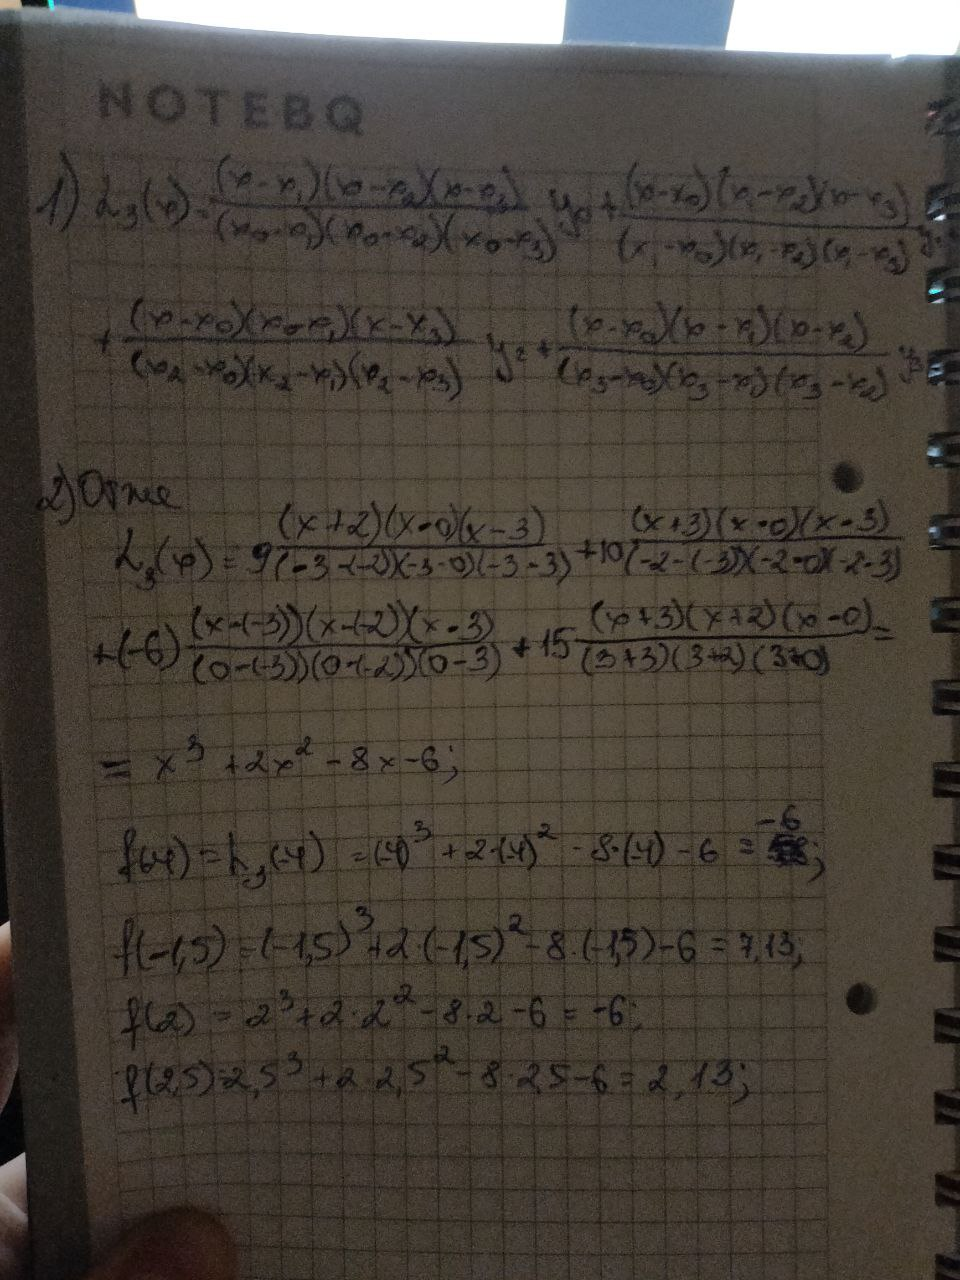 NOTEBQ
1) L₃(x) = (x-x₁)(x-x₂)(x-x₃)/(x₀-x₁)(x₀-x₂)(x₀-x₃) y₀ + (x-x₀)(x₁-x₂)(x-x₃)/(x₁-x₀)(x₁-x₂)(x₁-x₃)
+ (x-x₀)(x₀-x₁)(x-x₃)/(x₂-x₀)(x₂-x₁)(x₂-x₃) y₂ + (x-x₀)(x-x₁)(x-x₂)/(x₃-x₀)(x₃-x₁)(x₃-x₂) y₃
2) Отже
L₃(x) = 9 (x+2)(x-0)(x-3)/(-3-(-2))(-3-0)(-3-3) + 10 (x+3)(x-0)(x-3)/(-2-(-3))(-2-0)(-2-3)
+(-6) (x-(-3))(x-(-2))(x-3)/(0-(-3))(0-(-2))(0-3) + 15 (x+3)(x+2)(x-0)/(3+3)(3+2)(3+0) =
= x³ + 2x² - 8x - 6;
f(-4) = L₃(-4) = (-4)³ + 2·(-4)² - 8·(-4) - 6 = -6;
f(-1,5) = (-1,5)³ + 2·(-1,5)² - 8·(-1,5) - 6 = 7,13;
f(2) = 2³ + 2·2² - 8·2 - 6 = -6;
f(2,5) = 2,5³ + 2·2,5² - 8·2,5 - 6 = 2,13;